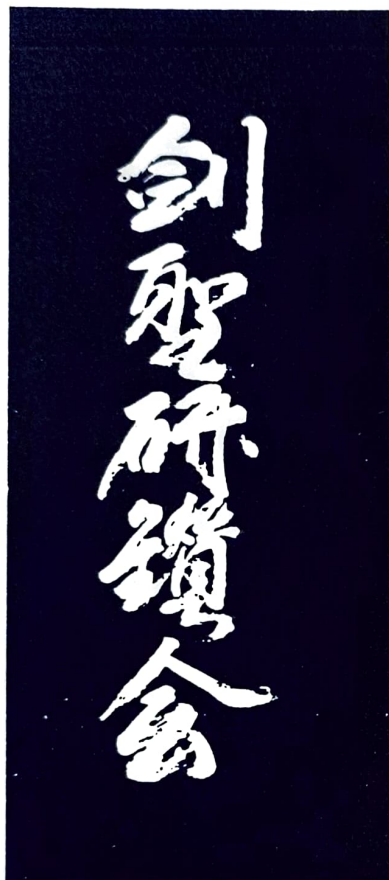 剣聖研鑽会